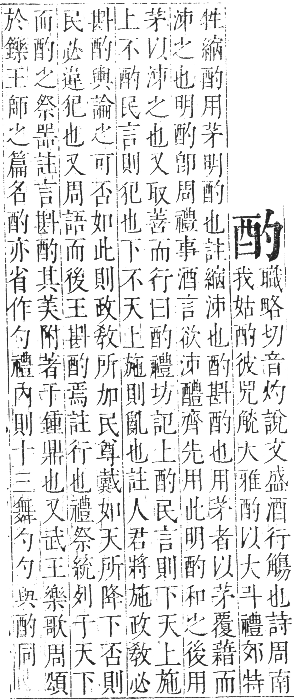 酌職略切音灼說文盛酒行觴也詩周南
我姑酌彼兕觥大雅酌以大斗禮郊特
牲縮酌用茅明酌也註縮泲也酌斟酌也用茅者以茅覆藉而
泲之也明酌卽周禮事酒言欲泲醴齊先用此明酌和之後用
茅以泲之也又取善而行曰酌禮坊記上酌民言則下天上施
上不酌民言則犯也下不天上施則亂也註人君將施政敎必
斟酌輿論之可否如此則政敎所加民尊戴如天所降下否則
民必違犯也又周語而後王斟酌焉註行也禮祭統列于天下
而酌之祭器註言斟酌其美附著于鍾鼎也又武王樂歌周頌
於鑠王師之篇名酌亦省作勺禮內則十三舞勺勺與酌同